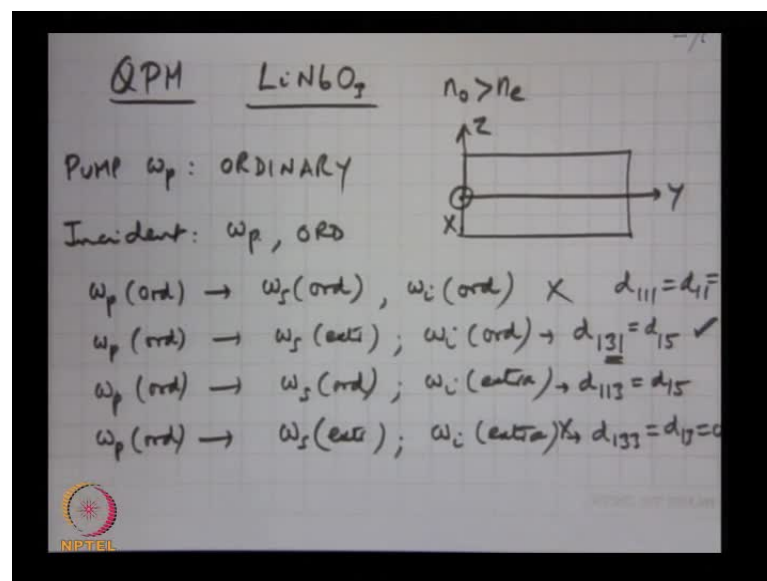 QPM LiNbO3
n0 > ne
Z
PUMP ωp : ORDINARY
Y
X
Incident: ωp, ORD
ωp (ord) → ωs (ord), ωi (ord) X d111 = d11 =
ωp (ord) → ωs (ext); ωi (ord) → d131 = d15 ✓
ωp (ord) → ωs (ord); ωi (extra) → d113 = d15
ωp (ord) → ωs (ext); ωi (extra) X→ d133 = d13 = 0
NPTEL